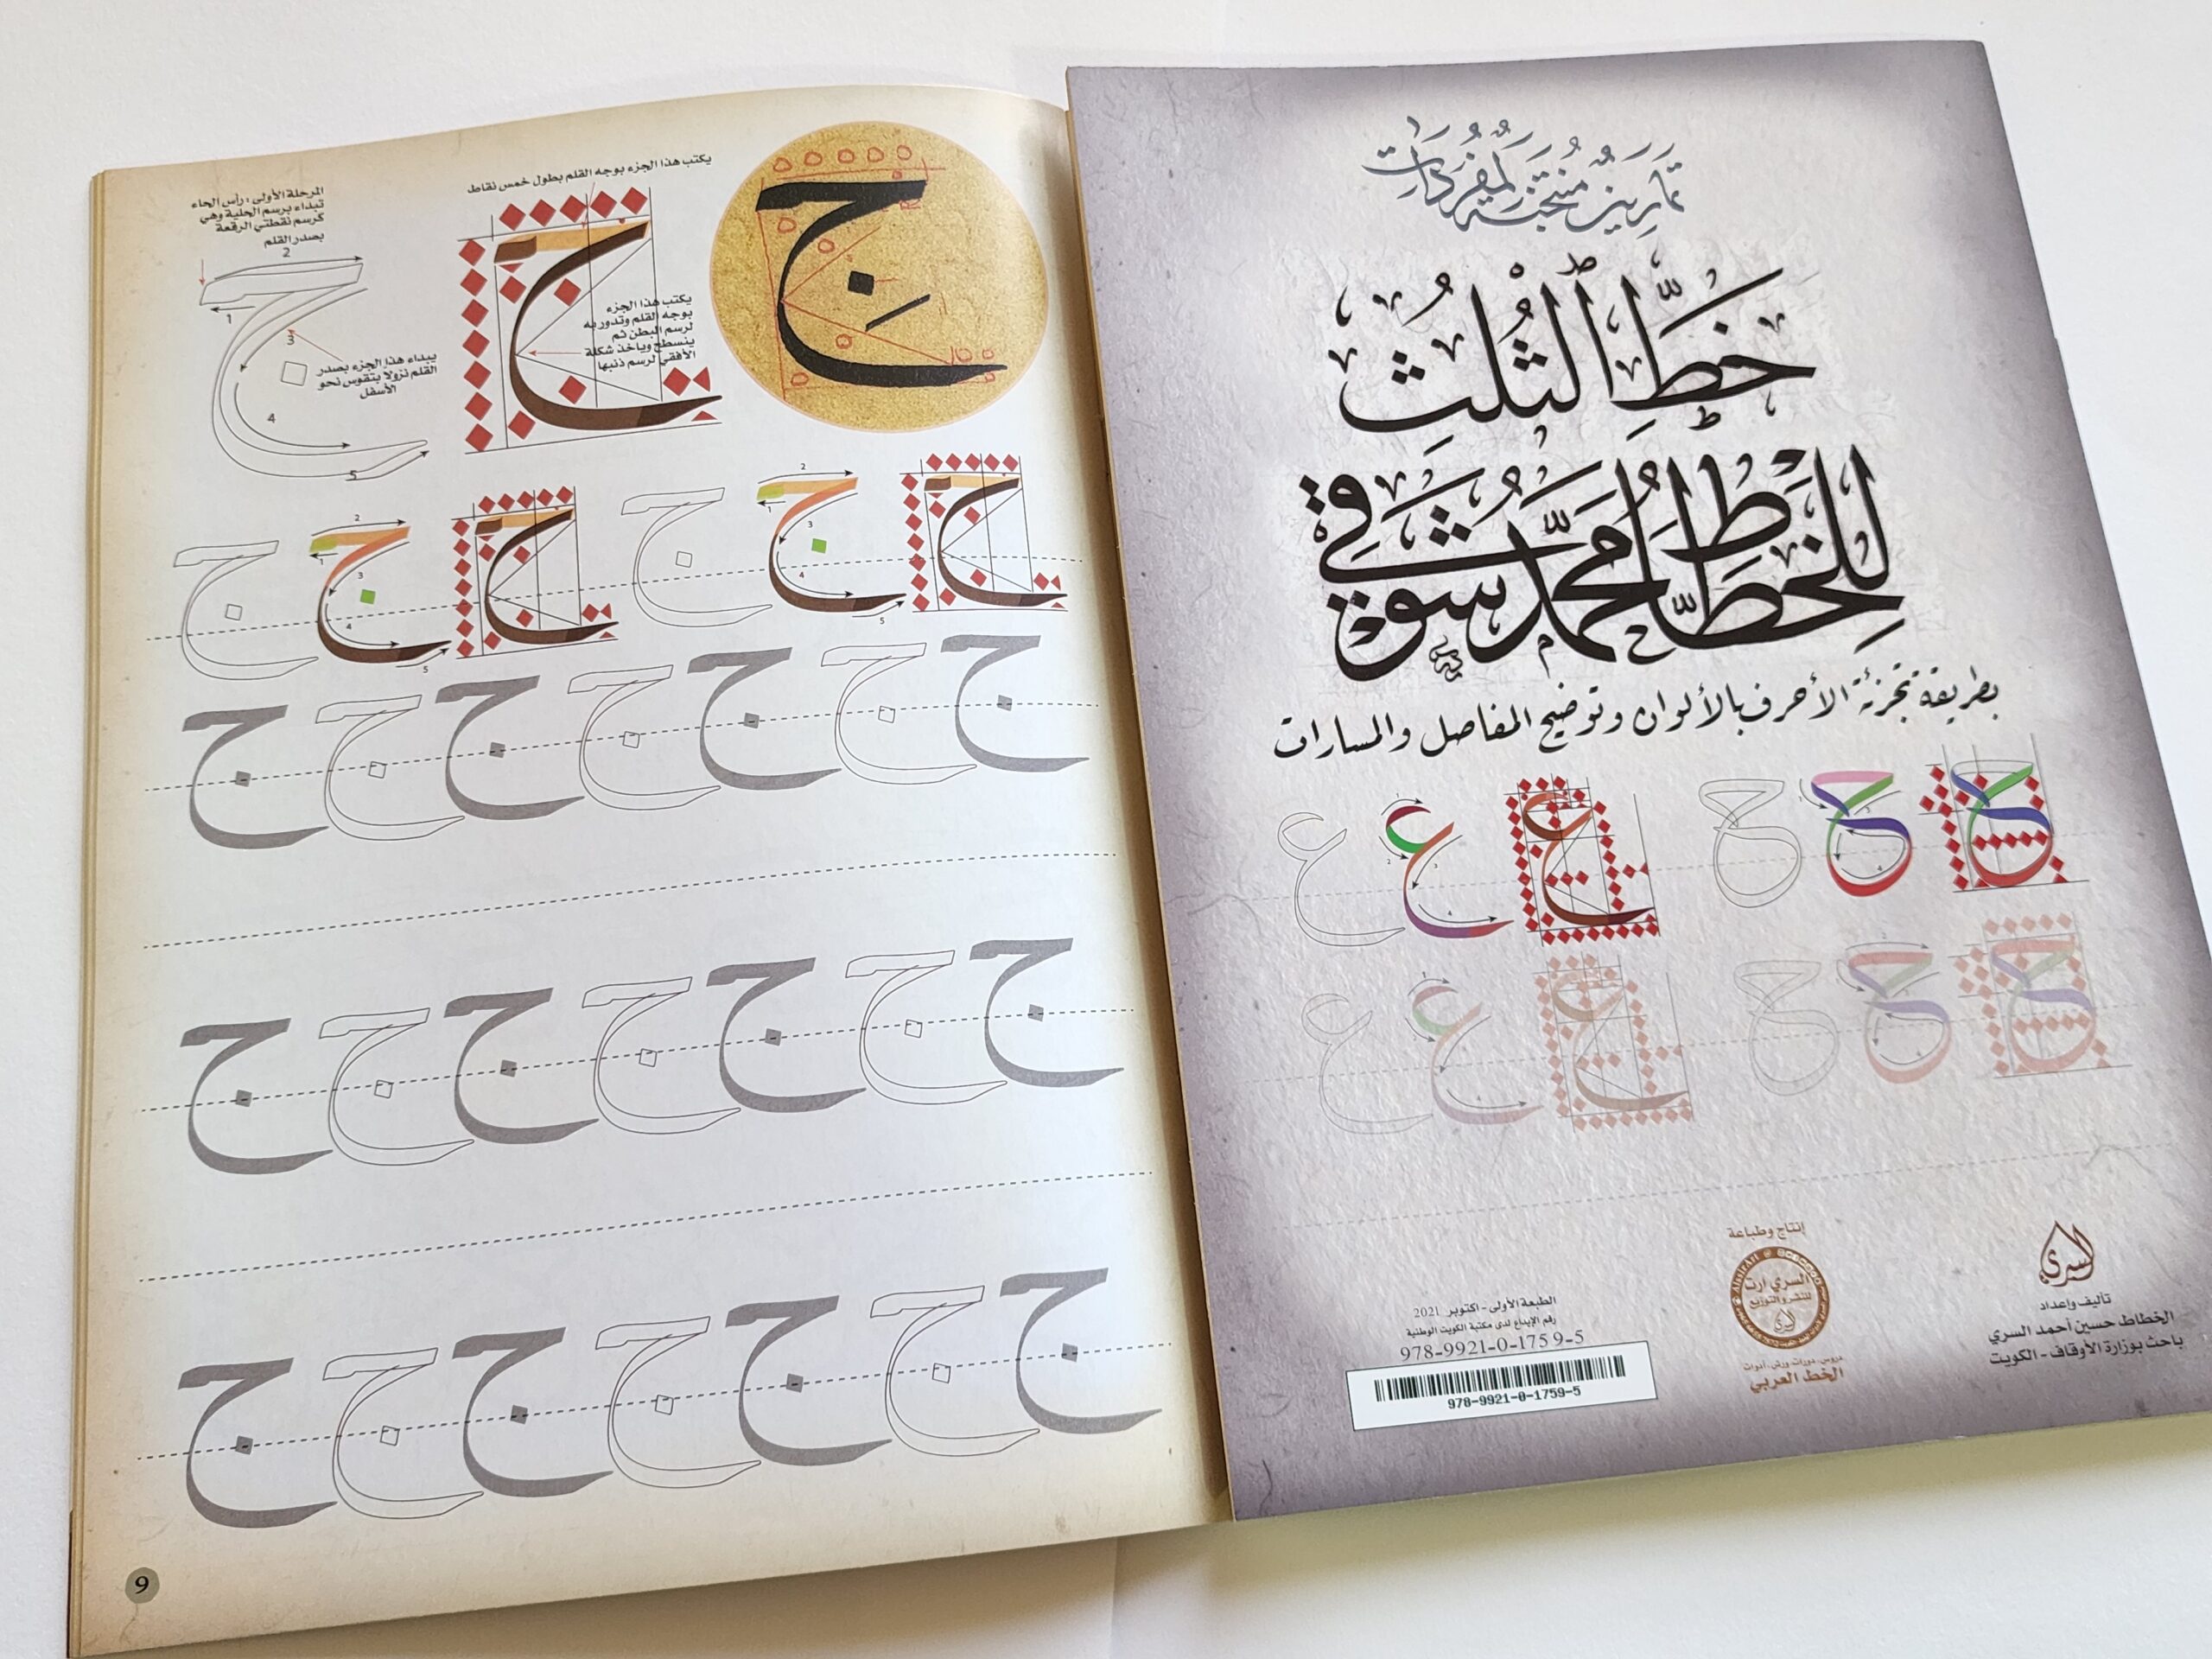 تمارين منتخبة لمفردات
خط الثلث
للخطاط محمد شوقي
بطريقة تجزئة الأحرف بالألوان وتوضيح المفاصل والمسارات
السري
تأليف وإعداد
الخطاط حسين أحمد السري
باحث بوزارة الأوقاف - الكويت
إنتاج وطباعة
السري ارت
للنشر والتوزيع
دروس، دورات، ورش، أدوات
الخط العربي
الطبعة الأولى - اكتوبر 2021
رقم الإيداع لدى مكتبة الكويت الوطنية
978-9921-0-1759-5
978-9921-0-1759-5
يكتب هذا الجزء بوجه القلم بطول خمس نقاط
المرحلة الأولى : رأس الحاء
تبداء برسم الحلية وهي
كرسم نقطتي الرقعة
بصدر القلم
يكتب هذا الجزء
بوجه القلم وتدور به
لرسم البطن ثم
ينسطح وياخذ شكله
الأفقي لرسم ذنبها
يبداء هذا الجزء بصدر
القلم نزولا بتقوس نحو
الأسفل
1
2
3
4
5
ج
ج ج ج ج ج ج
ج ج ج ج ج ج ج
ج ج ج ج ج ج ج
ج ج ج ج ج ج ج
9